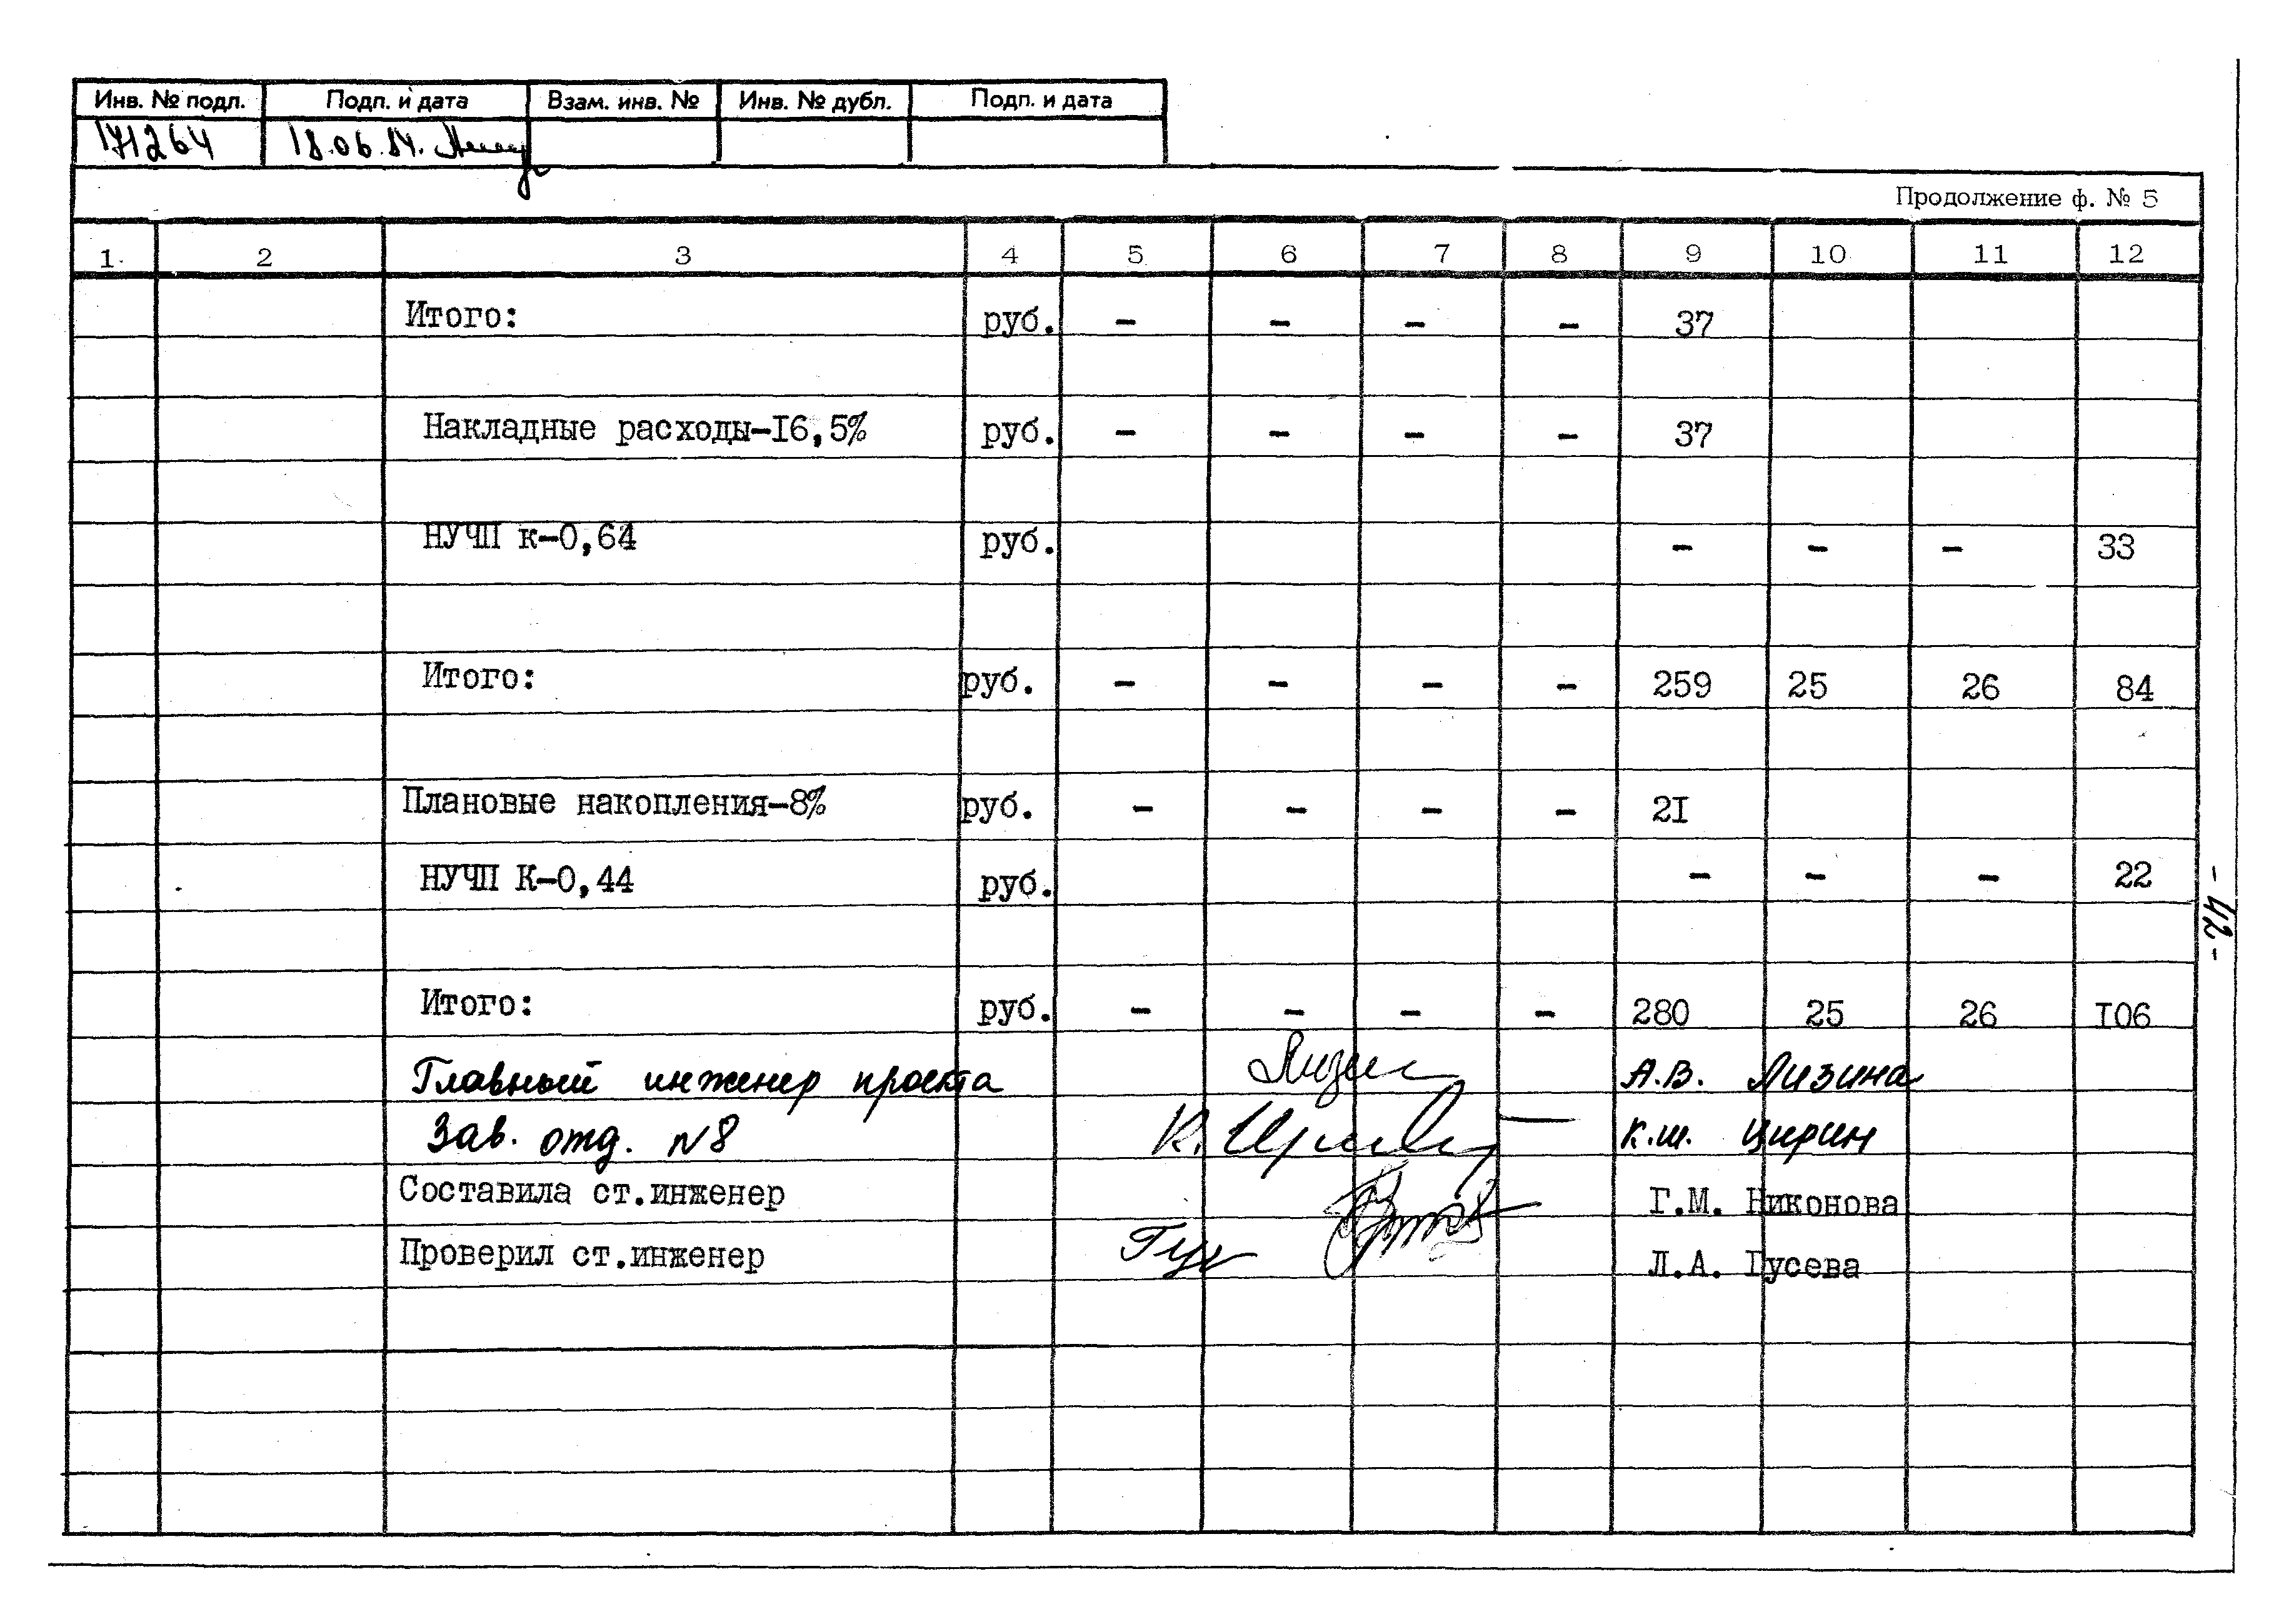 Инв. № подл. Подп. и дата Взам. инв. № Инв. № дубл. Подп. и дата
171264 18.06.84.
Продолжение ф. № 5
1 2 3 4 5 6 7 8 9 10 11 12
Итого: руб. – – – – 37
Накладные расходы–I6,5% руб. – – – – 37
НУЧП к–0,64 руб. – – – 33
Итого: руб. – – – – 259 25 26 84
Плановые накопления–8% руб. – – – – 2I
НУЧП К–0,44 руб. – – – 22
Итого: руб. – – – – 280 25 26 I06
Главный инженер проекта А.В. Лизина
Зав. отд. N8 К.Ш. Цирин
Составила ст.инженер Г.М. Никонова
Проверил ст.инженер Л.А. Гусева
- 42 -